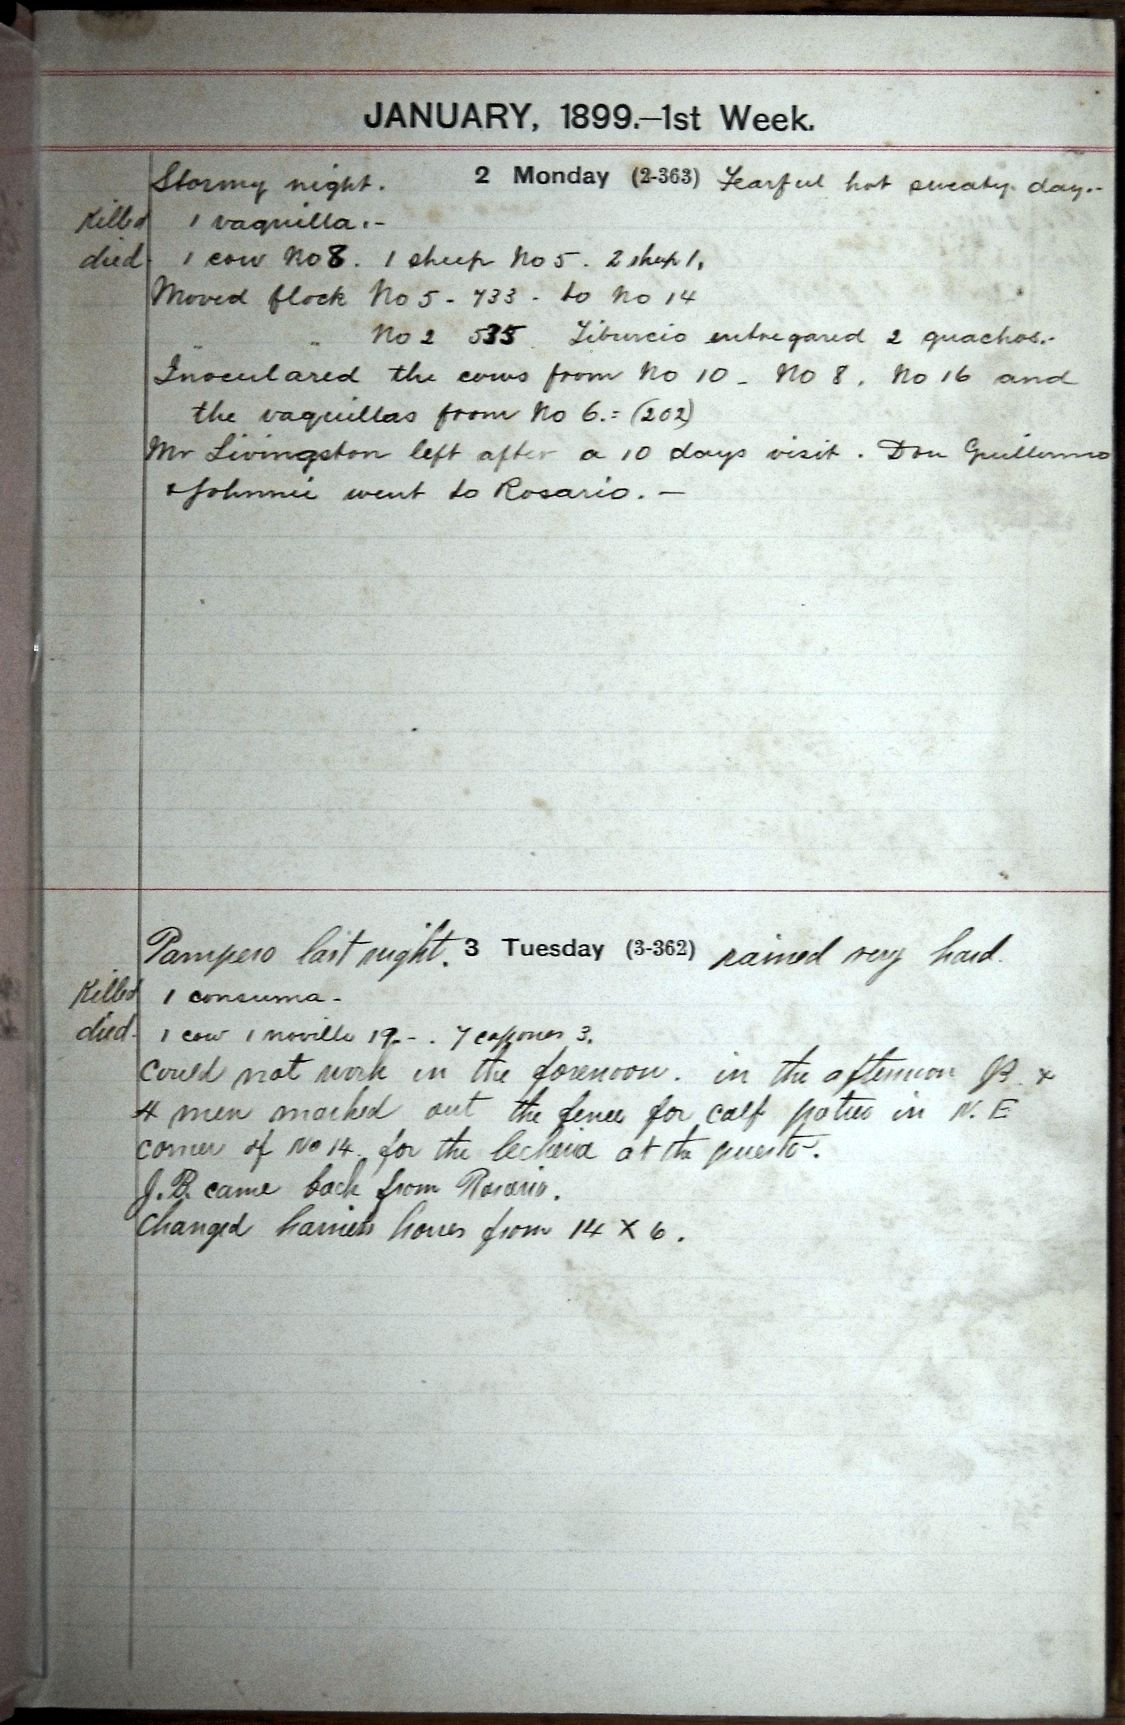 JANUARY, 1899.—1st Week.
Stormy night. 2 Monday (2-363) Fearful hot sweaty day.-
Killed 1 vaquilla.-
died 1 cow No 8. 1 sheep No 5. 2 sheep 1.
Moved flock No 5 - 733 - to No 14
" " No 2 535 Tiburcio entregared 2 guachos.-
Inoculared the cows from No 10 - No 8, No 16 and
the vaquillas from No 6. = (202)
Mr Livingston left after a 10 days visit. Don Guillermo
& Johnnie went to Rosario. -
Pampero last night. 3 Tuesday (3-362) rained very hard.
Killed 1 consuma -
died 1 cow 1 novillo 19.- . 7 capones 3.
Could not work in the forenoon. in the afternoon &
4 men marked out the fence for calf potier in N. E
corner of No 14 for the lecheria at the puesto.
J.B. came back from Rosario.
Changed harness horses from 14 X 6.